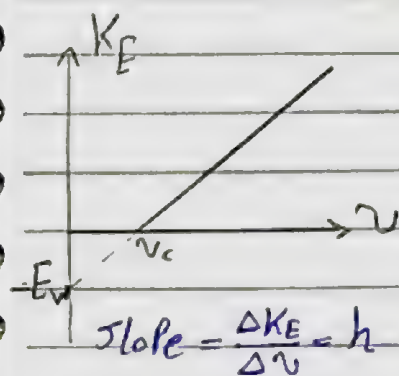 K_E
ν
ν_c
-E_w
Slope = ΔK_E / Δν = h